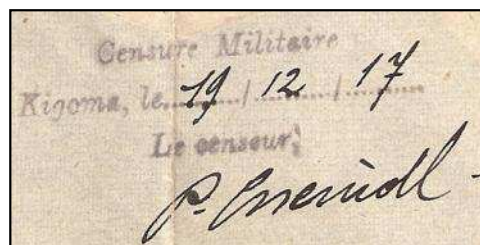 Censure Militaire
Kigoma, le 19/12/17
Le censeur,
P.